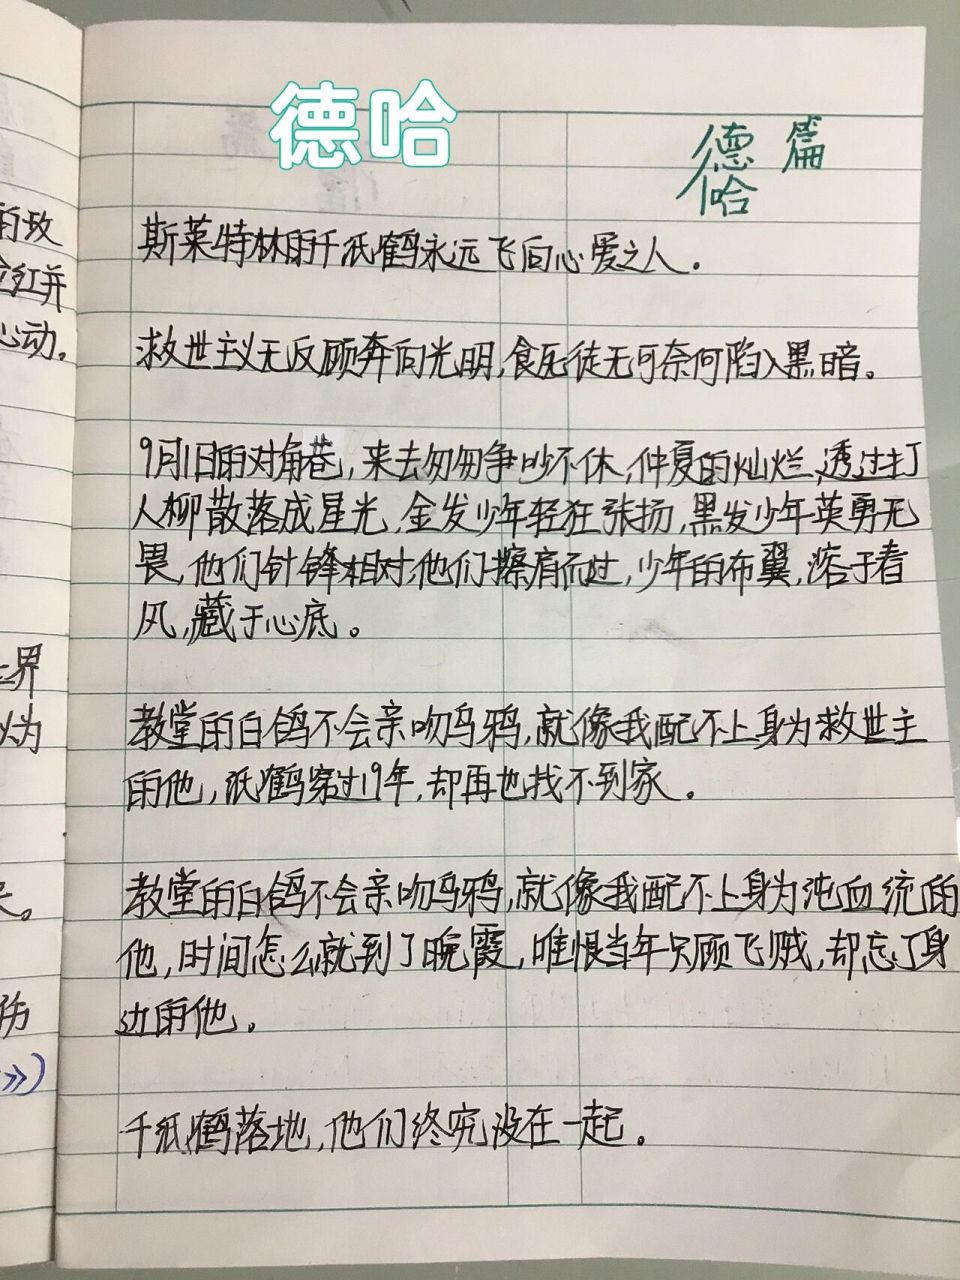 德哈
德哈篇
的玫
红并
心动。
斯莱特林的千纸鹤永远飞向心爱之人。
救世主义无反顾奔向光明,食死徒无可奈何陷入黑暗。
9月1日的对角巷,来去匆匆争吵不休,仲夏的灿烂,透过打
人柳散落成星光,金发少年轻狂张扬,黑发少年英勇无
畏,他们针锋相对,他们擦肩而过,少年的布翼,溶于春
风,藏于心底。
界
以为
教堂的白鸽不会亲吻乌鸦,就像我配不上身为救世主
的他,纸鹤穿过19年,却再也找不到家。
教堂的白鸽不会亲吻乌鸦,就像我配不上身为纯血统的
他,时间怎么就到了晚霞,唯恨当年只顾飞贼,却忘了身
边的他。
伤
》)
千纸鹤落地,他们终究没在一起。